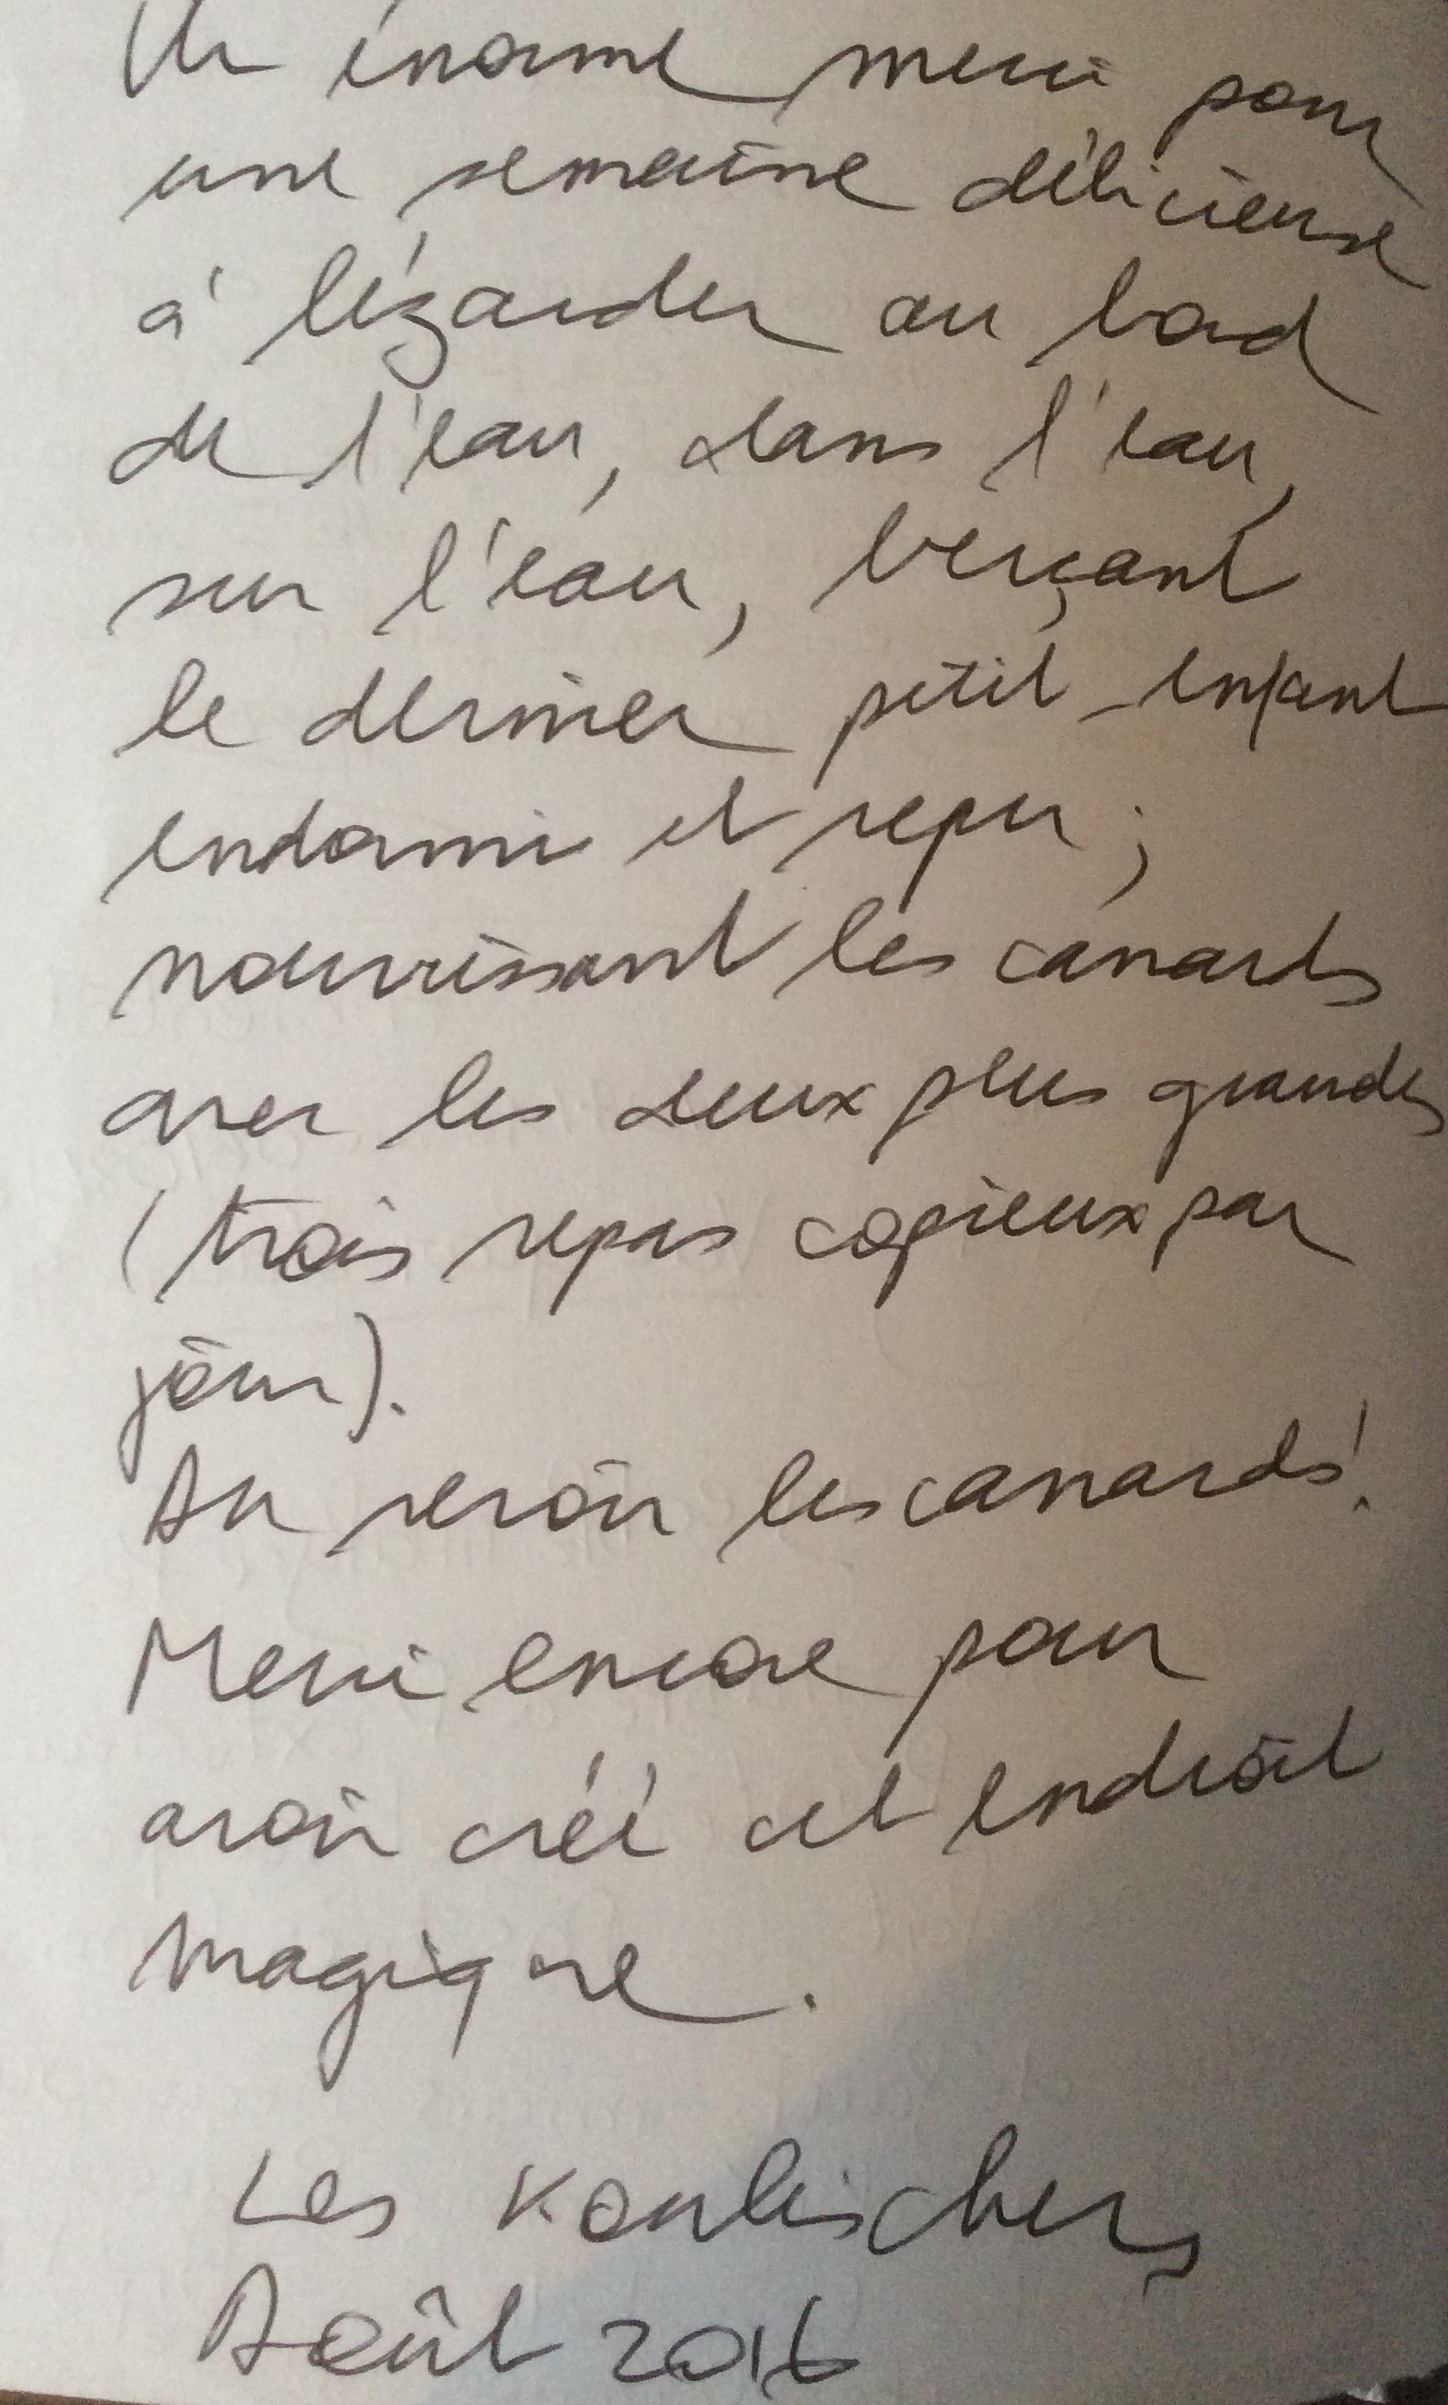 Un énorme merci pour
une semaine délicieuse
à lézarder au bord
de l'eau, dans l'eau,
sur l'eau, berçant
le dernier petit-enfant
endormi et repu ;
nourrissant les canards
avec les deux plus grandes
(trois repas copieux par
jour).
Au revoir les canards !
Merci encore pour
avoir créé cet endroit
magique.
Les Koulischers
Août 2016